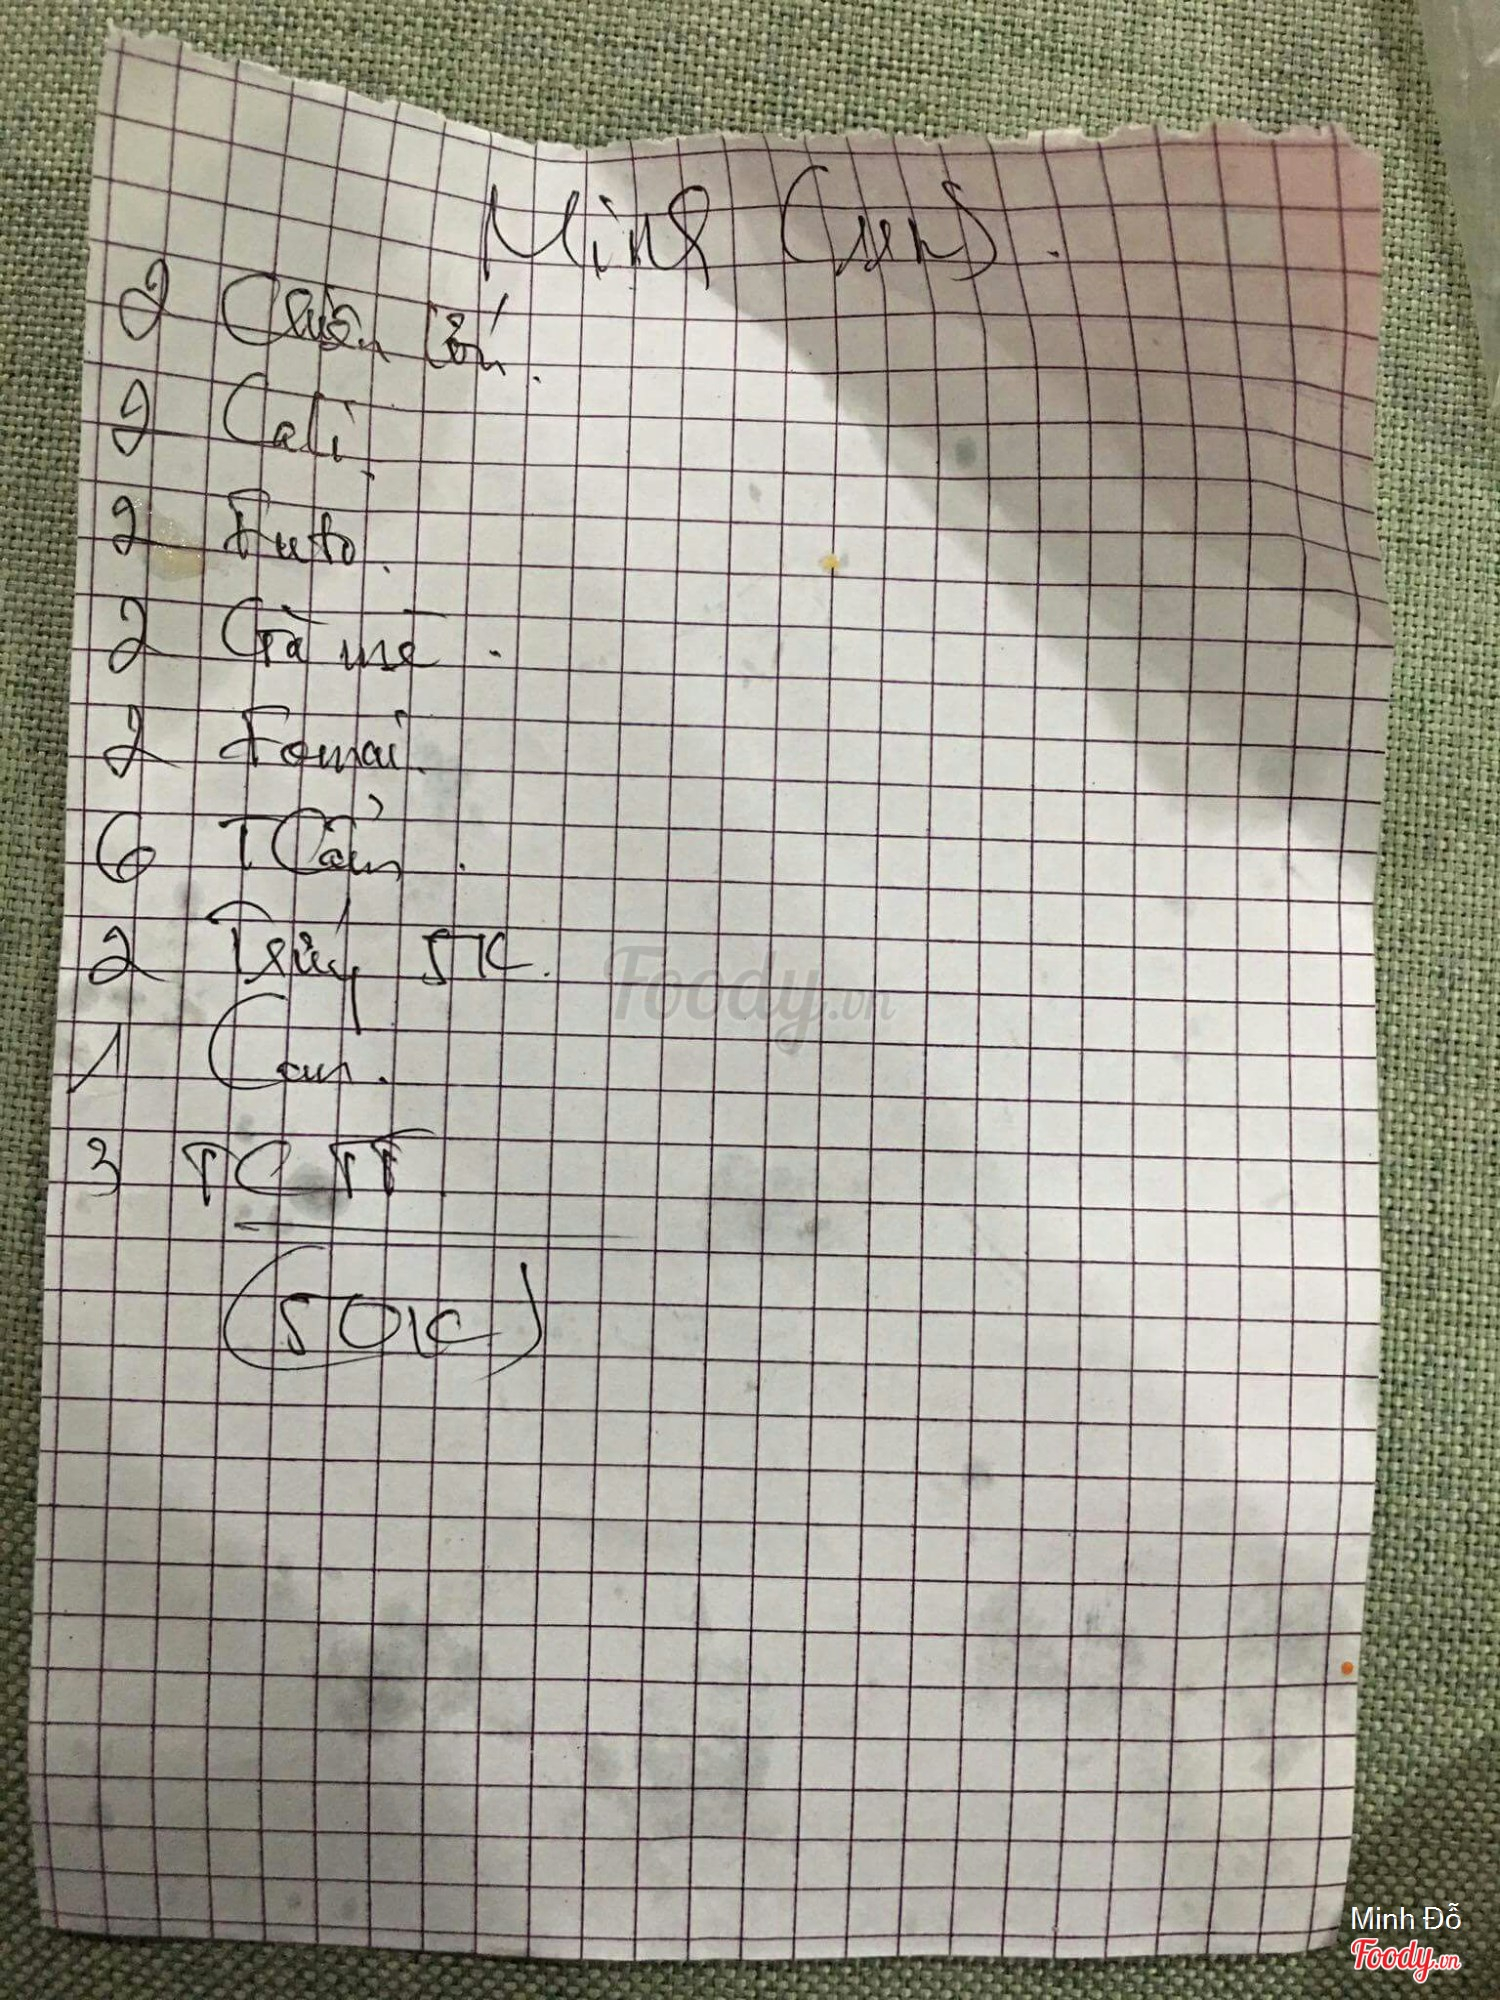 Minh
2 Cuộn
2 Cali.
2 Futo.
2 Gà mè.
2 Fomai.
6 T Cầm.
2 Trứng 5K.
1 Cam.
3 TCTT
(50K)
Foody.vn
Minh Đỗ
Foody.vn